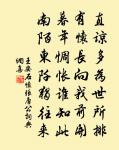 直諒多為世所排
有懷長向我前開
暮年惆悵誰知此
南陌東阡獨往來
王安石懷張唐公詞典
網書